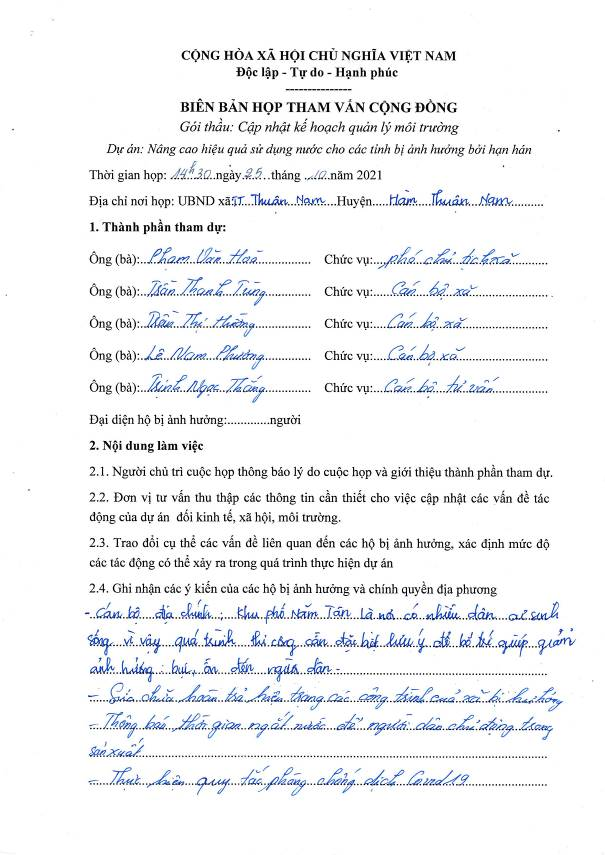 CỘNG HÒA XÃ HỘI CHỦ NGHĨA VIỆT NAM
Độc lập - Tự do - Hạnh phúc
---------------
BIÊN BẢN HỌP THAM VẤN CỘNG ĐỒNG
Gói thầu: Cập nhật kế hoạch quản lý môi trường
Dự án: Nâng cao hiệu quả sử dụng nước cho các tỉnh bị ảnh hưởng bởi hạn hán
Thời gian họp: 14h30 ngày 25 tháng 10 năm 2021
Địa chỉ nơi họp: UBND xã TT Thuận Nam Huyện Hàm Thuận Nam
1. Thành phần tham dự:
Ông (bà): Phạm Văn Hoà Chức vụ: phó chủ tịch xã
Ông (bà): Trần Thanh Tùng Chức vụ: Cán bộ xã
Ông (bà): Trần Thị Hường Chức vụ: Cán bộ xã
Ông (bà): Lê Nam Phương Chức vụ: Cán bộ xã
Ông (bà): Trịnh Ngọc Thắng Chức vụ: Cán bộ tư vấn
Đại diện hộ bị ảnh hưởng:.............người
2. Nội dung làm việc
2.1. Người chủ trì cuộc họp thông báo lý do cuộc họp và giới thiệu thành phần tham dự.
2.2. Đơn vị tư vấn thu thập các thông tin cần thiết cho việc cập nhật các vấn đề tác
động của dự án đối kinh tế, xã hội, môi trường.
2.3. Trao đổi cụ thể các vấn đề liên quan đến các hộ bị ảnh hưởng, xác định mức độ
các tác động có thể xảy ra trong quá trình thực hiện dự án
2.4. Ghi nhận các ý kiến của các hộ bị ảnh hưởng và chính quyền địa phương
- Cán bộ địa chính: Khu phố Nam Tân là nơi có nhiều dân cư sinh
sống vì vậy quá trình thi công cần đặc biệt lưu ý để bố trí giúp giảm
ảnh hưởng: bụi, ồn đến người dân -
- Sửa chữa hoàn trả hiện trạng các công trình của xã bị hư hỏng
- Thông báo thời gian ngắt nước để người dân chủ động trong
sản xuất
- Thực hiện quy tắc phòng chống dịch Covid 19